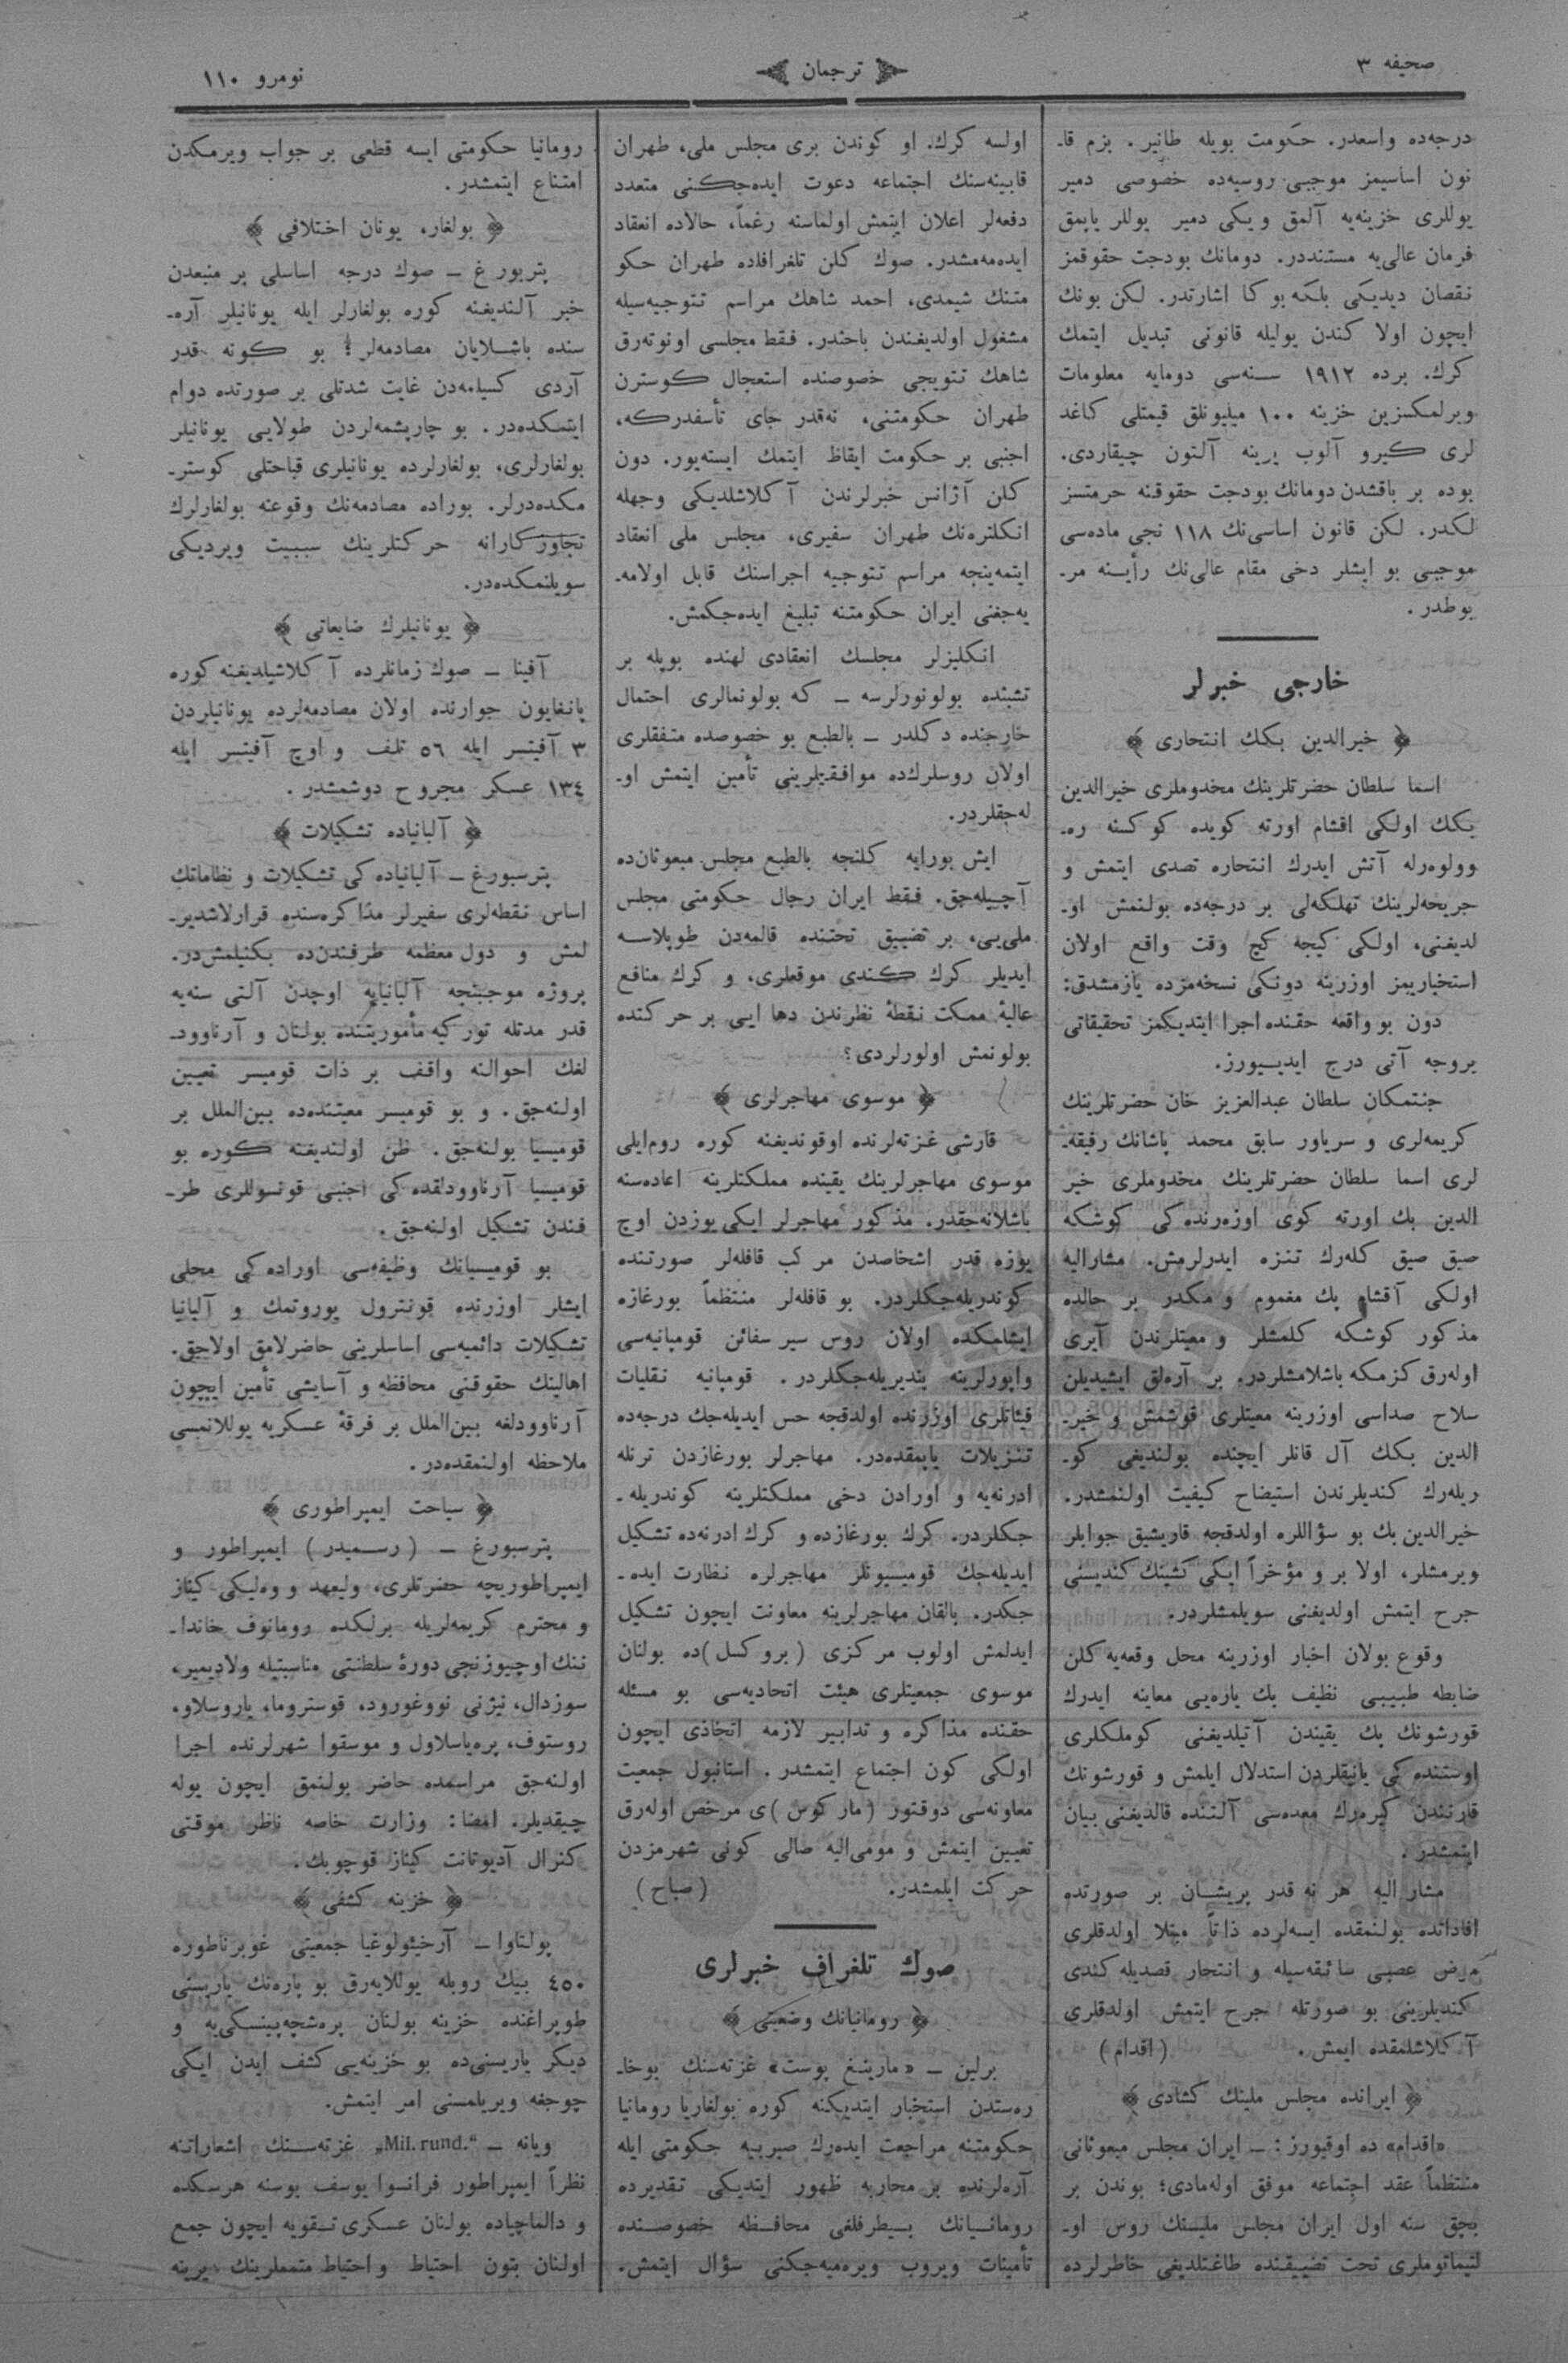 صحیفه ٣
ترجمان
نومرو ١١٠
درجه‌ده واسعدر. حکومت بویله طانیر. بزم قا-
نون اساسیمز موجبی روسیه‌ده خصوصی دمیر
یوللری خزینه‌یه آلمق و یکی دمیر یوللر یاپمق
فرمان عالی‌یه مستنددر. دومانك بودجت حقوقمز
نقصان دیدیکی بلکه بو کا اشارتدر. لکن بونك
ایچون اولا کندن یولیله قانونی تبدیل ایتمك
کرك. برده ١٩١٢ سنه‌سی دومایه معلومات
ویرلمکسزین خزینه ١٠٠ میلیونلق قیمتلی کاغد
لری کیرو آلوب یرینه آلتون چیقاردی.
بوده بر باقشدن دومانك بودجت حقوقنه حرمتسز
لکدر. لکن قانون اساسی‌نك ١١٨ نجی ماده‌سی
موجبی بو ایشلر دخی مقام عالی‌نك رأینه مر-
بوطدر.
خارجی خبرلر
﴿ خیرالدین بکك انتحاری ﴾
اسما سلطان حضرتلرینك مخدوملری خیرالدین
بکك اولکی اقشام اورته کویده کوکسنه ره-
وولوه‌رله آتش ایدرك انتحاره تصدی ایتمش و
جریحه‌لرینك تهلکه‌لی بر درجه‌ده بولنمش او-
لدیغنی، اولکی کیجه کچ وقت واقع اولان
استخباریمز اوزرینه دونکی نسخه‌مزده یازمشدق:
دون بو واقعه حقنده اجرا ایتدیکمز تحقیقاتی
بروجه آتی درج ایدییورز.
جنتمکان سلطان عبدالعزیز خان حضرتلرینك
کریمه‌لری و سریاور سابق محمد پاشانك رفیقه-
لری اسما سلطان حضرتلرینك مخدوملری خیر
الدین بك اورته کوی اوزه‌رنده‌کی کوشکه
صیق صیق کله‌رك تنزه ایدرلرمش. مشارالیه
اولکی آقشام پك مغموم و مکدر بر حالده
مذکور کوشکه کلمشلر و معیتلرندن آیری
اوله‌رق کزمکه باشلامشلردر. بر آره‌لق ایشیدیلن
سلاح صداسی اوزرینه معیتلری قوشمش و خیر-
الدین بکك آل قانلر ایچنده بولندیغی کو-
ریله‌رك کندیلرندن استیضاح کیفیت اولنمشدر.
خیرالدین بك بو سؤاللره اولدقجه قاریشیق جوابلر
ویرمشلر، اولا بر و مؤخراً ایکی کشینك کندیسنی
جرح ایتمش اولدیغنی سویلمشلردر.
وقوع بولان اخبار اوزرینه محل وقعه‌یه کلن
ضابطه طبیبی نظیف بك یاره‌یی معاینه ایدرك
قورشونك پك یقیندن آتیلدیغنی کوملکلری
اوستنده‌کی یانیقلردن استدلال ایلمش و قورشونك
قارنندن کیره‌رك معده‌سی آلتنده قالدیغنی بیان
ایتمشدر.
مشار الیه هر نه قدر پریشان بر صورتده
افاداتده بولنمقده ایسه‌لرده ذاتاً مبتلا اولدقلری
مرض عصبی سائقه‌سیله و انتحار قصدیله کندی
کندیلرینی بو صورتله جرح ایتمش اولدقلری
آکلاشلمقده ایمش. (اقدام)
﴿ ایرانده مجلس ملینك کشادی ﴾
«اقدام» ده اوقیورز: – ایران مجلس مبعوثانی
منتظماً عقد اجتماعه موفق اوله‌مادی؛ بوندن بر
بچق سنه اول ایران مجلس ملیسنك روس او-
لتیماتوملری تحت تضییقنده طاغتلدیغی خاطرلرده
اولسه کرك. او کوندن بری مجلس ملی، طهران
قابینه‌سنك اجتماعه دعوت ایده‌جکنی متعدد
دفعه‌لر اعلان ایتمش اولماسنه رغماً، حالاده انعقاد
ایده‌مه‌مشدر. صوك کلن تلغرافلاده طهران حکو
متنك شیمدی، احمد شاهك مراسم تتوجیه‌سیله
مشغول اولدیغندن باحثدر. فقط مجلسی اونوته‌رق
شاهك تتویجی خصوصنده استعجال کوسترن
طهران حکومتنی، نه‌قدر جای تأسفدرکه،
اجنبی بر حکومت ایقاظ ایتمك ایسته‌یور. دون
کلن آژانس خبرلرندن آکلاشلدیکی وجهله
انکلتره‌نك طهران سفیری، مجلس ملی انعقاد
ایتمه‌ینجه مراسم تتوجیه اجراسنك قابل اولامه-
یه‌جغنی ایران حکومتنه تبلیغ ایده‌جکمش.
انکلیزلر مجلسك انعقادی لهنده بویله بر
تشبثده بولونورلرسه – که بولونمالری احتمال
خارجنده دکلدر – بالطبع بو خصوصده متفقلری
اولان روسلرك‌ده موافقتلرینی تأمین ایتمش او-
له‌جقلردر.
ایش بورایه کلنجه بالطبع مجلس مبعوثان‌ده
آچیله‌جق. فقط ایران رجال حکومتی مجلس
ملی‌یی، بر تضییق تحتنده قالمه‌دن طوپلاسه
ایدیلر کرك کندی موقعلری، و کرك منافع
عالیهٔ ممکت نقطهٔ نظرندن دها ایی بر حرکتده
بولونمش اولورلردی؟
﴿ موسوی مهاجرلری ﴾
قارشی غزته‌لرنده اوقوندیغنه کوره روم‌ایلی
موسوی مهاجرلرینك یقینده مملکتلرینه اعاده‌سنه
باشلانه‌جقدر. مذکور مهاجرلر ایکی یوزدن اوچ
یوزه قدر اشخاصدن مرکب قافله‌لر صورتنده
کوندریله‌جکلردر. بو قافله‌لر منتظماً بورغازه
ایشلمکده اولان روس سیر سفائن قومپانیه‌سی
واپورلرینه بندیریله‌جکلردر. قومپانیه نقلیات
فیئاتلری اوزرنده اولدقجه حس ایدیله‌جك درجه‌ده
تنزیلات یاپمقده‌در. مهاجرلر بورغازدن ترنله
ادرنه‌یه و اورادن دخی مملکتلرینه کوندریله-
جکلردر. کرك بورغازده و کرك ادرنه‌ده تشکیل
ایدیله‌جك قومیسیونلر مهاجرلره نظارت ایده-
جکدر. بالقان مهاجرلرینه معاونت ایچون تشکیل
ایدلمش اولوب مرکزی (بروکسل) ده بولنان
موسوی جمعیتلری هیئت اتحادیه‌سی بو مسئله
حقنده مذاکره و تدابیر لازمه اتخاذی ایچون
اولکی کون اجتماع ایتمشدر. استانبول جمعیت
معاونه‌سی دوقتور (مارکوس) ی مرخص اوله‌رق
تعیین ایتمش و مومی‌الیه صالی کونی شهرمزدن
حرکت ایلمشدر. (صباح)
صوك تلغراف خبرلری
﴿ رومانیانك وضعیتی ﴾
برلین – «مارینغ پوست» غزته‌سنك بوخا-
ره‌ستدن استخبار ایتدیکنه کوره بولغاریا رومانیا
حکومتنه مراجعت ایده‌رك صیربیه حکومتی ایله
آره‌لرنده بر محاربه ظهور ایتدیکی تقدیرده
رومانیانك بیطرفلغی محافظه خصوصنده
تأمینات ویروب ویره‌میه‌جکنی سؤال ایتمش.
رومانیا حکومتی ایسه قطعی بر جواب ویرمکدن
امتناع ایتمشدر.
﴿ بولغار، یونان اختلافی ﴾
پتربورغ – صوك درجه اساسلی بر منبعدن
خبر آلندیغنه کوره بولغارلر ایله یونانیلر آره-
سنده باشلایان مصادمه‌لر؛ بو کونه قدر
آردی کسیلمه‌دن غایت شدتلی بر صورتده دوام
ایتمکده‌در. بو چارپشمه‌لردن طولایی یونانیلر
بولغارلری، بولغارلرده یونانیلری قباحتلی کوستر-
مکده‌درلر. بوراده مصادمه‌نك وقوعنه بولغارلرك
تجاوزکارانه حرکتلرینك سببیت ویردیکی
سویلنمکده‌در.
﴿ یونانیلرك ضایعاتی ﴾
آفینا – صوك زمانلرده آکلاشیلدیغنه کوره
پانغایون جوارنده اولان مصادمه‌لرده یونانیلردن
٣ آفیتسر ایله ٥٦ تلف و اوچ آفیتسر ایله
١٣٤ عسکر مجروح دوشمشدر.
﴿ آلبانیاده تشکیلات ﴾
پترسبورغ – آلبانیاده‌کی تشکیلات و نظاماتك
اساس نقطه‌لری سفیرلر مذاکره‌سنده قرارلاشدیر-
لمش و دول معظمه طرفندن‌ده بکنیلمش‌در.
پروژه موجبنجه آلبانیایه اوچدن آلتی سنه‌یه
قدر مدتله تورکیه مأموریتنده بولنان و آرناوود-
لغك احوالنه واقف بر ذات قومیسر تعیین
اولنه‌جق. و بو قومیسر معیتنده‌ده بین‌الملل بر
قومیسیا بولنه‌جق. ظن اولندیغنه کوره بو
قومیسیا آرناوودلقده‌کی اجنبی قونسوللری طر-
فندن تشکیل اولنه‌جق.
بو قومیسیانك وظیفه‌سی اوراده‌کی محلی
ایشلر اوزرنده قونترول یوروتمك و آلبانیا
تشکیلات دائمیه‌سی اساسلرینی حاضرلامق اولاجق.
اهالینك حقوقنی محافظه و آسایشی تأمین ایچون
آرناوودلغه بین‌الملل بر فرقهٔ عسکریه یوللانمسی
ملاحظه اولنمقده‌در.
﴿ سیاحت ایمپراطوری ﴾
پترسبورغ – (رسمیدر) ایمپراطور و
ایمپراطوریچه حضرتلری، ولیعهد و وه‌لیکی کیناز
و محترم کریمه‌لریله برلکده رومانوف خاندا-
ننك اوچیوزنجی دورهٔ سلطنتی مناسبتیله ولادیمیر،
سوزدال، نیژنی نووغورود، قوستروما، یاروسلاو،
روستوف، پره‌یاسلاول و موسقوا شهرلرنده اجرا
اولنه‌جق مراسمده حاضر بولنمق ایچون یوله
چیقدیلر. امضا: وزارت خاصه ناظر موقتی
کنرال آدیوتانت کیناز قوچوبك.
﴿ خزینه کشفی ﴾
پولتاوا – آرخیئولوغیا جمعیتی غوبرناطوره
٤٥٠ بیك روبله یوللایه‌رق بو پاره‌نك یاریسنی
طوپراغنده خزینه بولنان پره‌شچه‌پینسکی‌یه و
دیکر یاریسنی‌ده بو خزینه‌یی کشف ایدن ایکی
چوجغه ویریلمسنی امر ایتمش.
ویانه – „Mil. rund.“ غزته‌سنك اشعاراتنه
نظراً ایمپراطور فرانسوا یوسف بوسنه هرسکده
و دالماچیاده بولنان عسکری تقویه ایچون جمع
اولنان بتون احتیاط و احتیاط متمملرینك یرینه